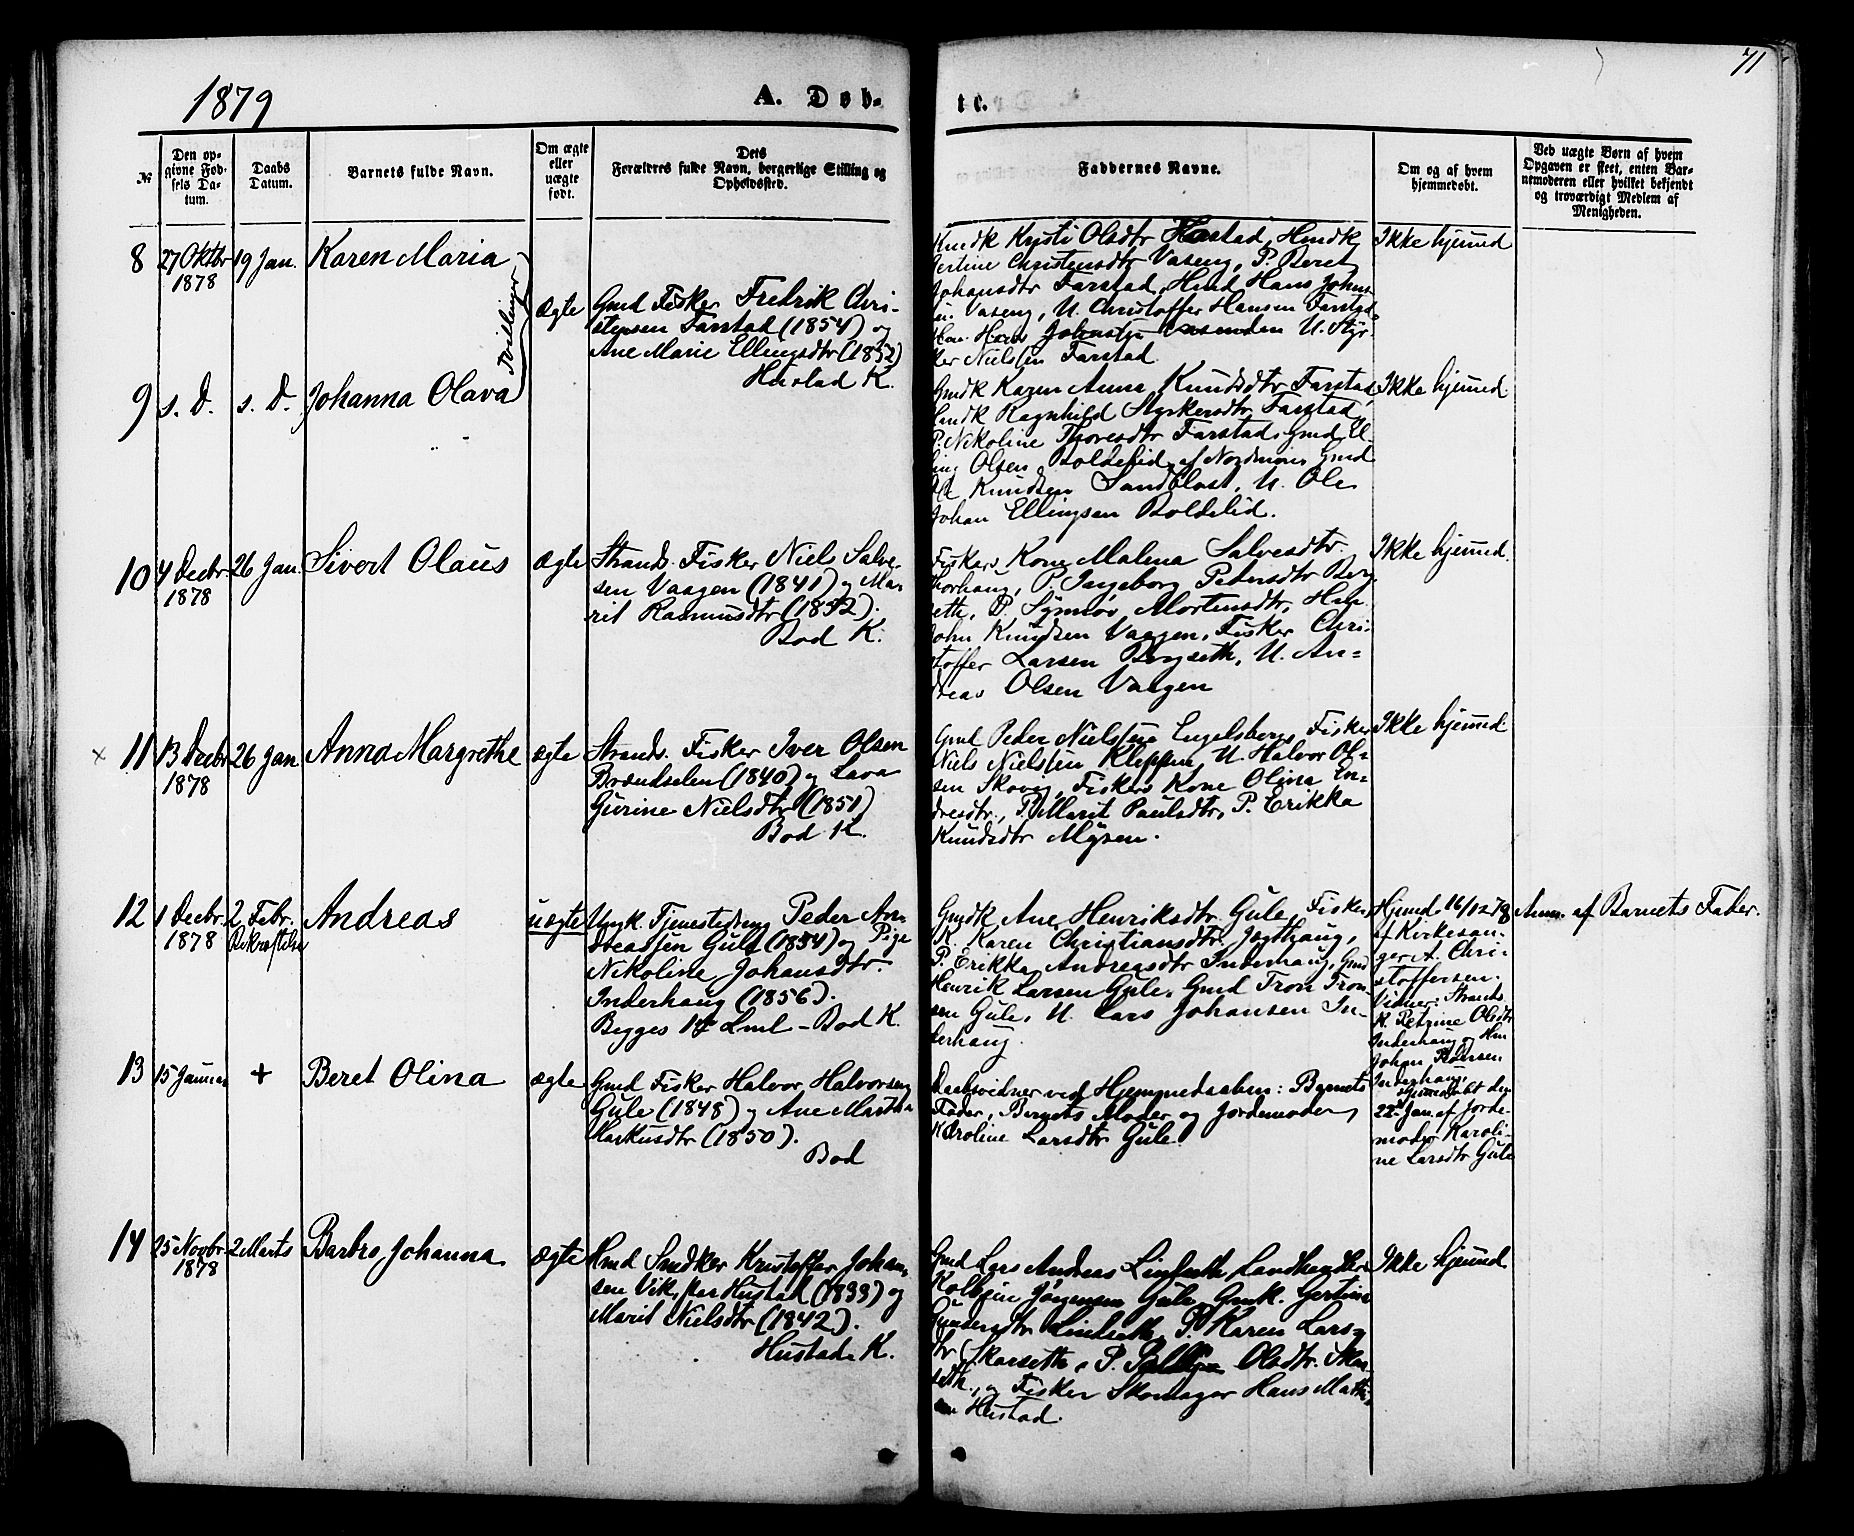 71
1879
A. Døb-
te.
№
Den op-
givne Fød-
sels Da-
tum.
Daabs
Datum.
Barnets fulde Navn.
Om ægte
eller
uægte
født.
Dets
Forældres fulde Navn, borgerlige Stilling og
Opholdssted.
Faddernes Navne.
Om og af hvem
hjemmedøbt.
Ved uægte Børn af hvem
Opgaven er skeet, enten Bar-
nemoderen eller hvilket bekjendt
og troværdigt Medlem af
Menigheden.
8
27 Oktbr
1878
19 Jan.
Karen Maria
Tvillinger
Ægte
Gmd Fisker Fredrik Chri-
stensen Farstad (1854) og
Ane Marie Ellingsdtr (1852)
Hustad K.
Kristi Olsdtr Hustad,
Christensdtr Vaseng, P. Beret
Johansdtr Farstad, Hans
Vaseng, U. Christoffer Hansen Farstad
U. Styr
ker Nielsen Farstad
Ikke hjemmed
9
s. D.
s. D.
Johanna Olava
Gmdk Karen Anna Knudsdtr Farstad
Ragnhild Styrkersdtr Farstad,
P. Nikoline Thoresdtr Farstad, Gmd El-
ling Olsen Boldelid af Nordmøre, Gmd
Knudsen Sandblaast, U. Ole
Johan Ellingsen Boldelid.
Ikke hjemmed
10
4 Decbr
1878
26 Jan.
Sivert Olaus
Ægte
Strands. Fisker Niels Salve-
sen Vaagen (1841) og Ma-
rit Rasmusdtr (1852).
Bod K.
Fiskers Kone Malena Salvesdtr
Thorhaug, P. Ingeborg Pedersdtr Berg
seth, P. Synnøv Mortensdtr,
John Knudsen Vaagen, Fisker Chri-
stoffer Larsen Bergseth, U. An-
dreas Olsen Vaagen
Ikke hjemmed.
11
13 Decbr
1878
26 Jan
Anna Margrethe
ægte
Strands. Fisker Iver Olsen
Brændselen (1840) og Lava
Gurine Nielsdtr (1851)
Bod K.
Gmd Peder Nielsen Engelsberg, Fisker
Niels Nielsen Kleppen, U. Halvor Ol-
sen Skovig, Fiskers Kone Olina En-
dresdtr, P. Marit Paulsdtr, P. Erikka
Knudsdtr Mysen.
Ikke hjemmed.
12
1 Decbr
1878
2 Febr.
Bekræftelse
Andreas
uægte
Ungk. Tjenestedreng Peder An-
dreassen Gule (1854) og Pige
Nikoline Johansdtr.
Inderhaug (1856).
Begges 1ste Lml - Bod K.
Gmdk Ane Henriksdtr Gule, Fisker
K. Karen Christiansdtr Jogthaug,
P. Erikka Andreasdtr Inderhaug, Gmd
Henrik Larsen Gule, Gmd Tron Tron-
sen Gule, U. Lars Johansen In-
derhaug.
Hjemd. 16/12 78
af Kirkesan-
ger A. Chri-
stoffersen.
Vidner: Strands.
K. Petrine Olsdtr
Inderhaug og
Johan Pedersen
Inderhaug.
Anm. af Barnets Fader.
13
15 Januar
+
Beret Olina
ægte
Gmd Fisker Halvor Halvorsen
Gule (1848) og Ane Martha
Markusdtr (1850).
Bod
Daabsvidner ved Hjemmedaaben: Barnets
Fader, Barnets Moder og Jordemoder
Karoline Larsdtr Gule.
Hjemmedøbt den
22 Jan. af Jorde-
moder Karoli-
ne Larsdtr Gule
14
25 Novbr
1878
2 Marts
Barbro Johanna
Ægte
Hmd Snedker Kristoffer Johan-
sen Vik, Hustad (1833) og
Marit Nielsdtr (1842).
Hustad K.
Gmd Lars Andreas Lindseth, Landhandler
Kolbjen Jørgensen Gule, Gmk. Gertine
Gundersdtr Lindseth, P. Karen Lars-
dtr Skarseth, P. Olsdtr. Skar
seth, og Fisker Skomager Hans Math.
sen Hustad.
Ikke hjemmed